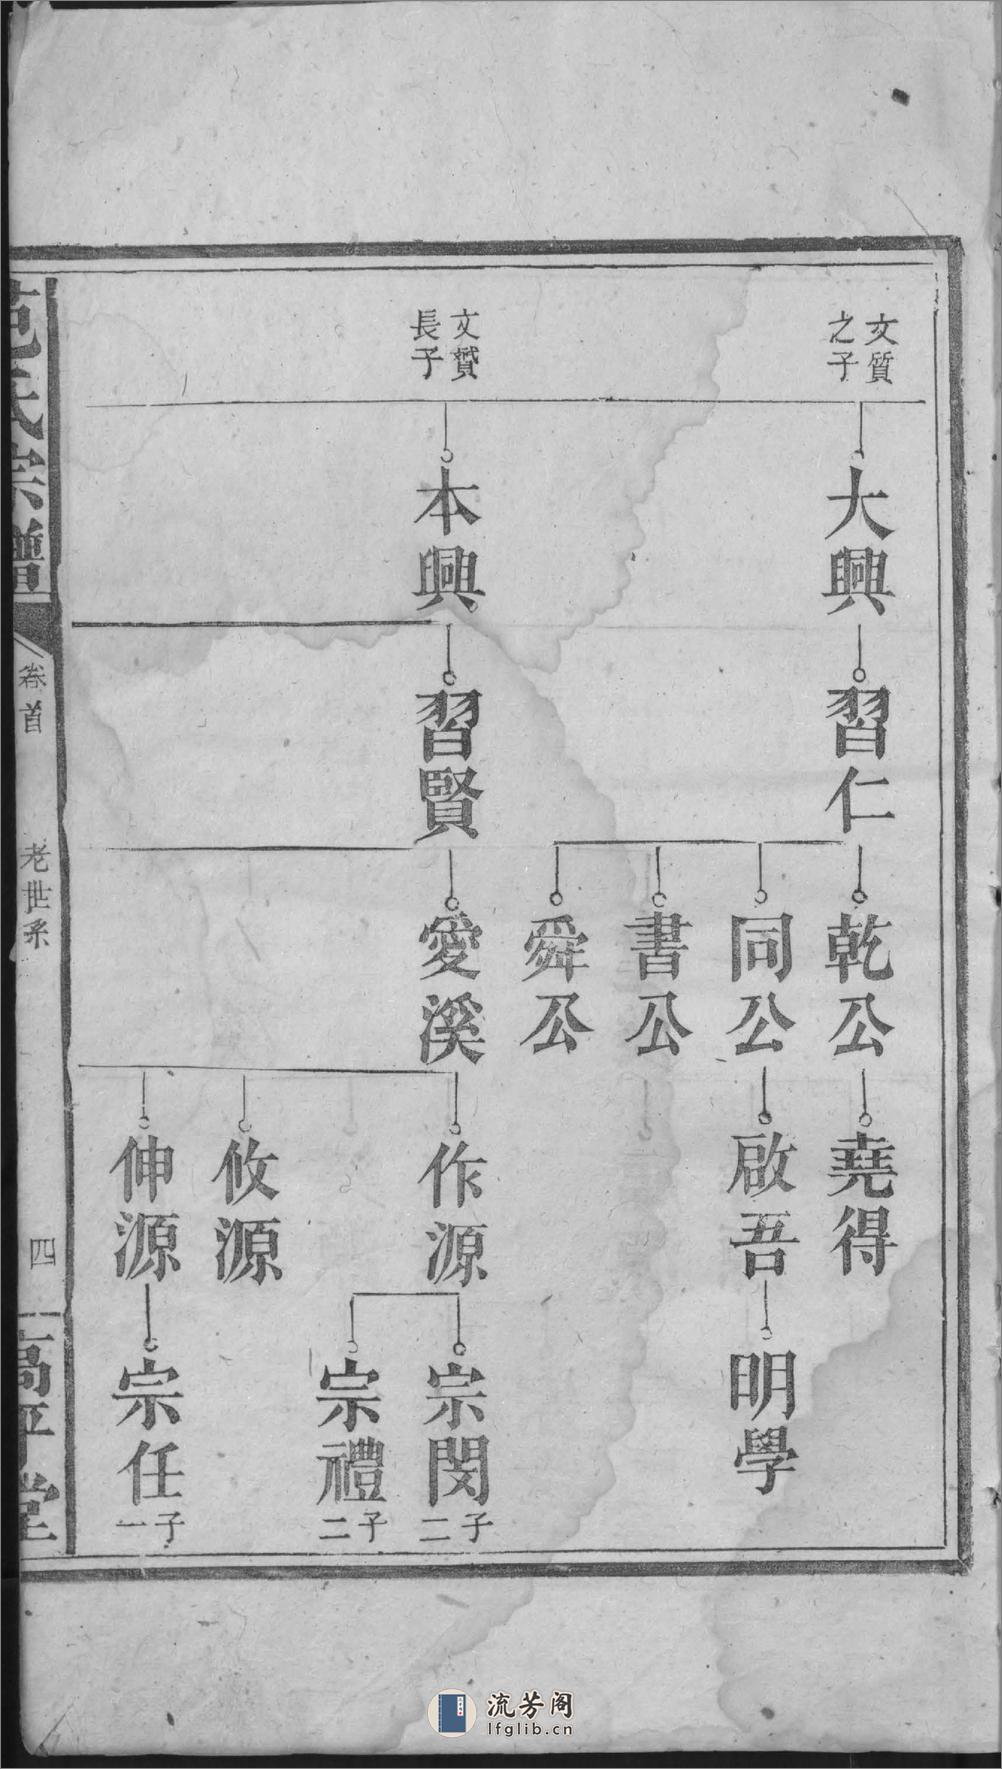 文質
之子
大興
習仁
乾公
堯得
同公
啟吾
明學
書公
舜公
文贇
長子
本興
習賢
愛溪
作源
宗閔
子二
宗禮
子二
攸源
伸源
宗任
子一
范氏宗譜
卷首
老世系
四
高平堂
流芳阁
lfglib.cn